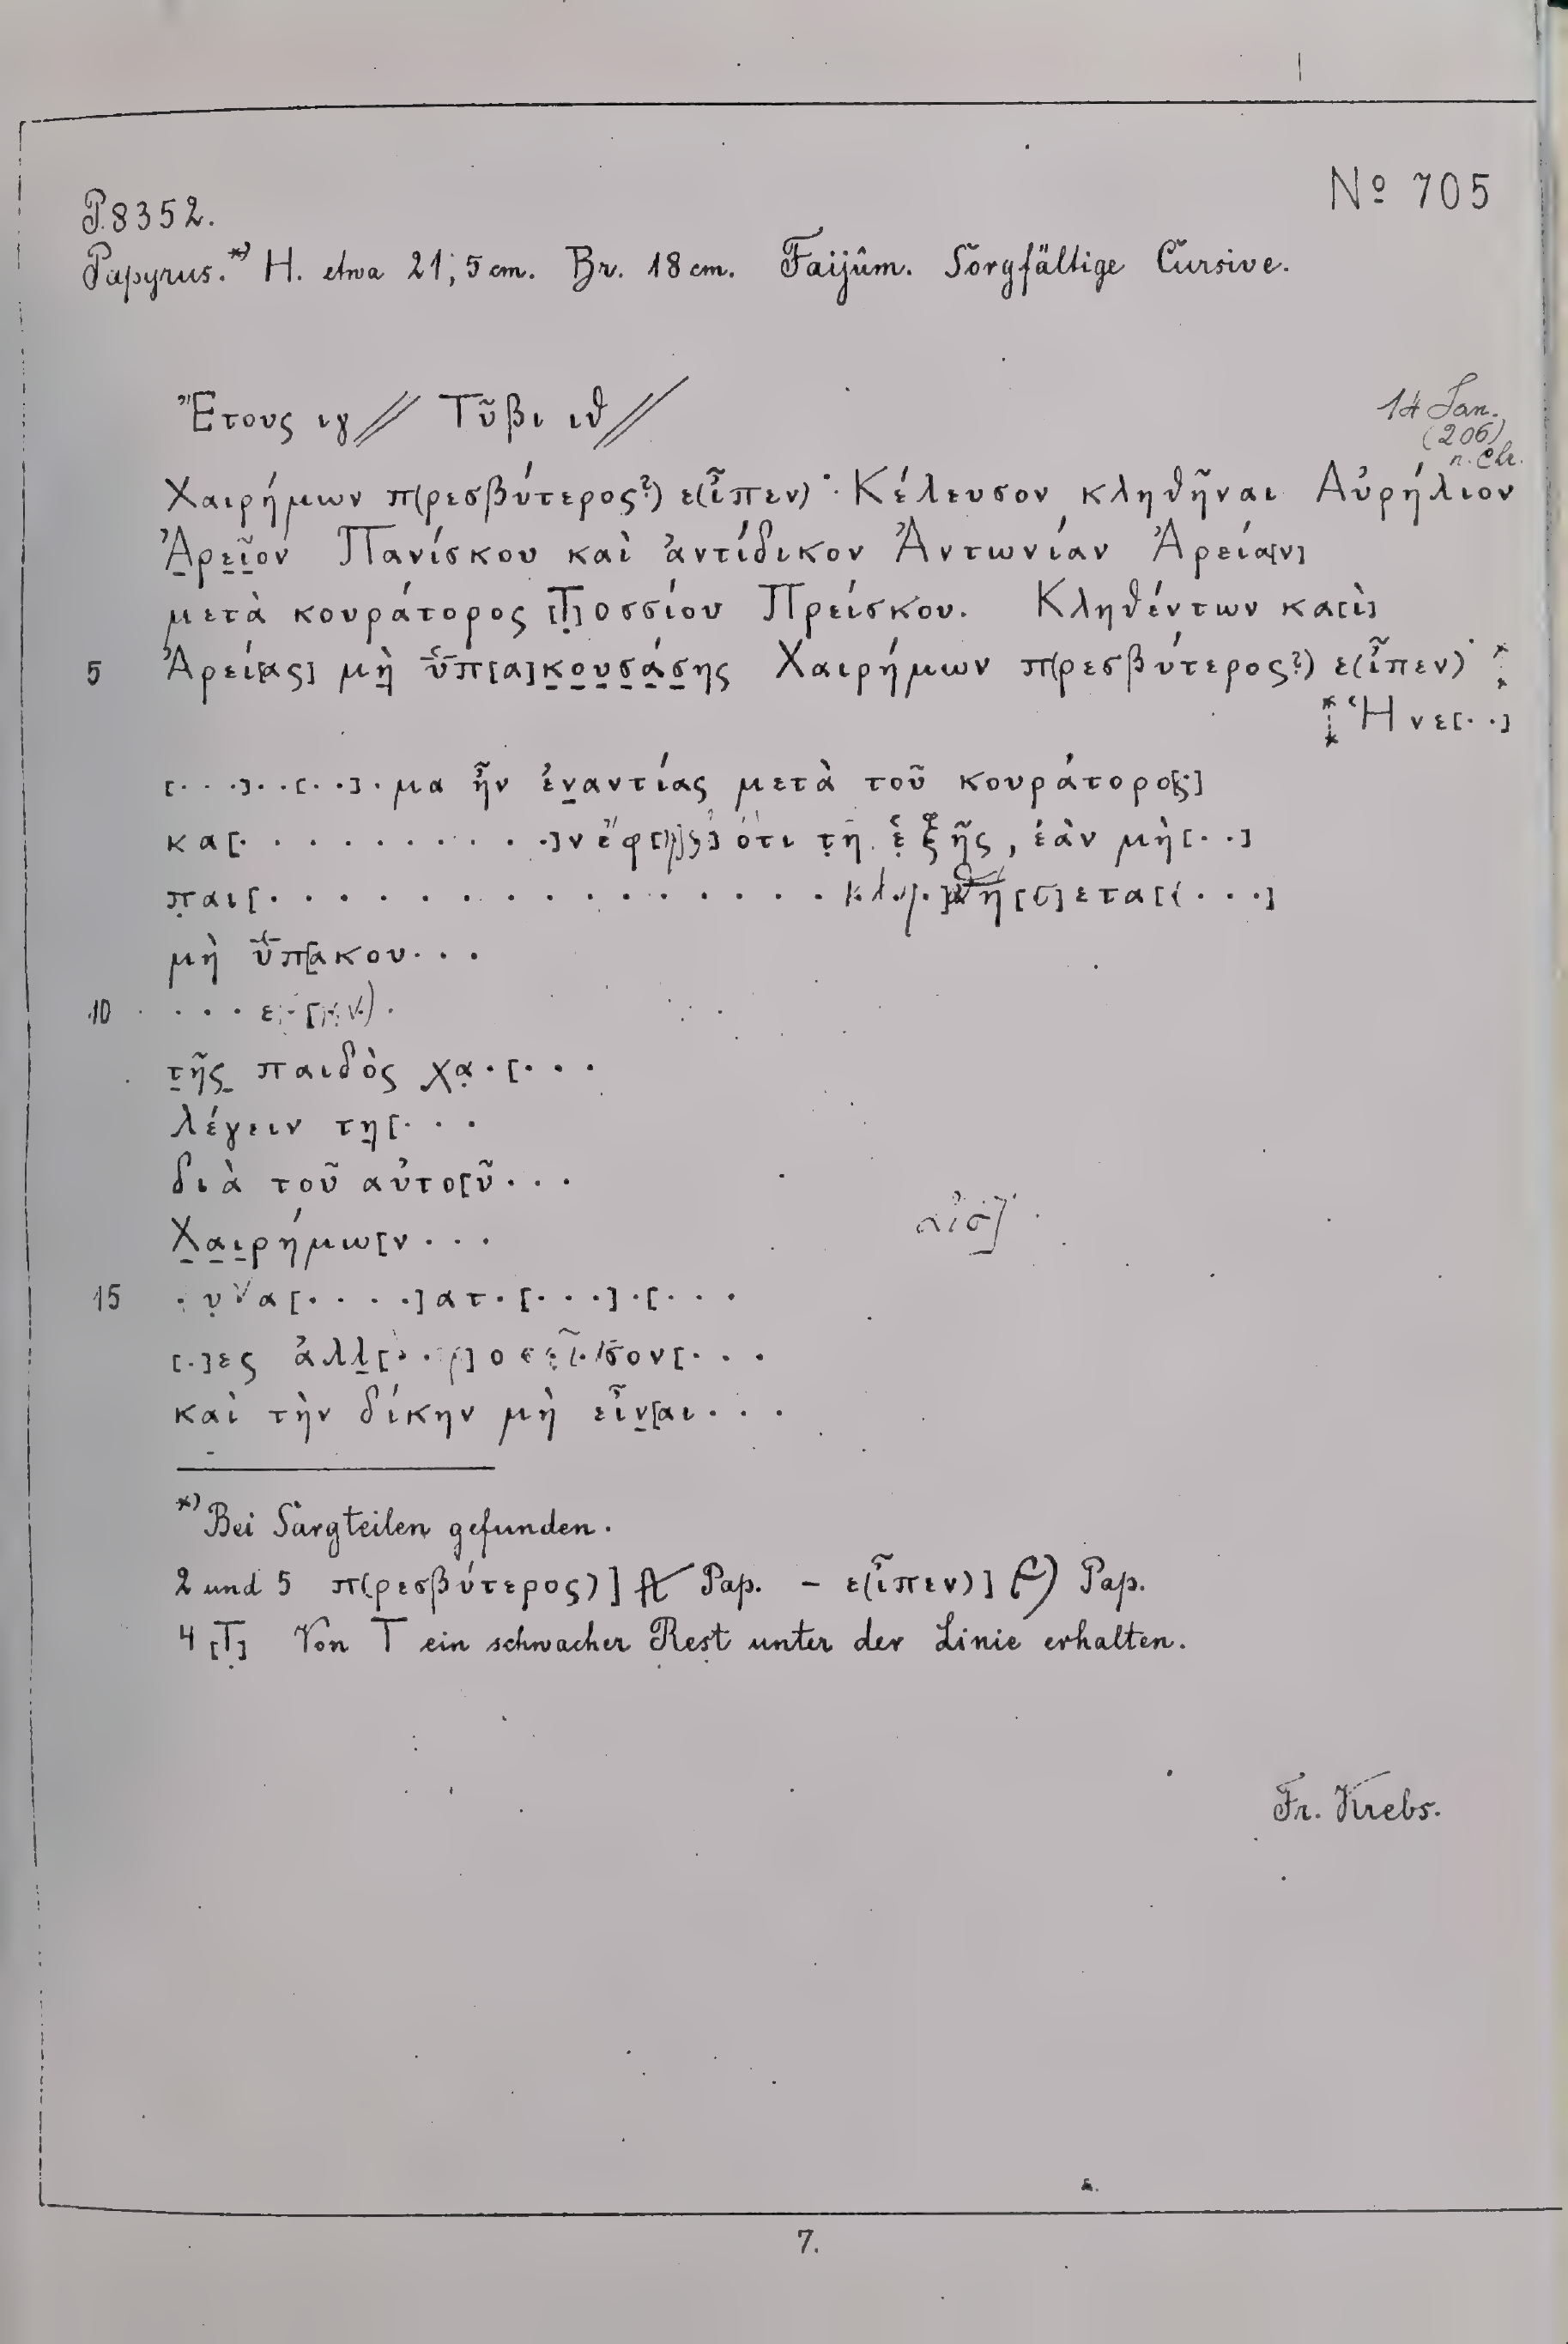 Nº 705
P. 8352.
Papyrus.*) H. etwa 21,5 cm. Br. 18 cm. Faijûm. Sorgfältige Cursive.
Ἔτους ιγ// Τῦβι ιθ//
14 Jan.
(206)
n. Chr.
Χαιρήμων π(ρεσβύτερος?) ε(ἶπεν)· Κέλευσον κληθῆναι Αὐρήλιον
Ἀ̣ρε̣ῖ̣ον Πανίσκου καὶ ἀντίδικον Ἀντωνίαν Ἀρεία[ν]
μετὰ κουράτορος [Τ̣]οσσίου Πρείσκου. Κληθέντων κα[ὶ]
5 Ἀρεί[ας] μὴ ὑπ[α]κ̣ο̣υ̣σ̣ά̣σ̣ης Χαιρήμων π(ρεσβύτερος?) ε(ἶπεν)·
Ἡ νε[..]
[...]..[..].μα ἦν ἐν̣αντίας μετὰ τοῦ κουράτορο[ς]
κα[..........]ν ἔφ[ης] ὅτι τ̣ῆ ἑ̣ξῆς, ἐὰν μὴ[..]
π̣αι[................ θή[σ]ετα[ι...]
μὴ ὑπ[ακου...
10 ...
τ̣ῆς̣ παιδὸς χα̣.[...
λέγειν τη̣[...
διὰ τοῦ αὐτο[ῦ...
Χ̣α̣ι̣ρήμω[ν...
15 .υ̣ α[....]ατ.[...].[...
[.]ες ἀλλ̣[ ]ο ον[...
καὶ τὴν δίκην μὴ εἶν̣[αι...
*) Bei Sargteilen gefunden.
2 und 5 π(ρεσβύτερος)] Pap. – ε(ἶπεν)] Pap.
4 [Τ̣] Von Τ ein schwacher Rest unter der Linie erhalten.
Fr. Krebs.
7.